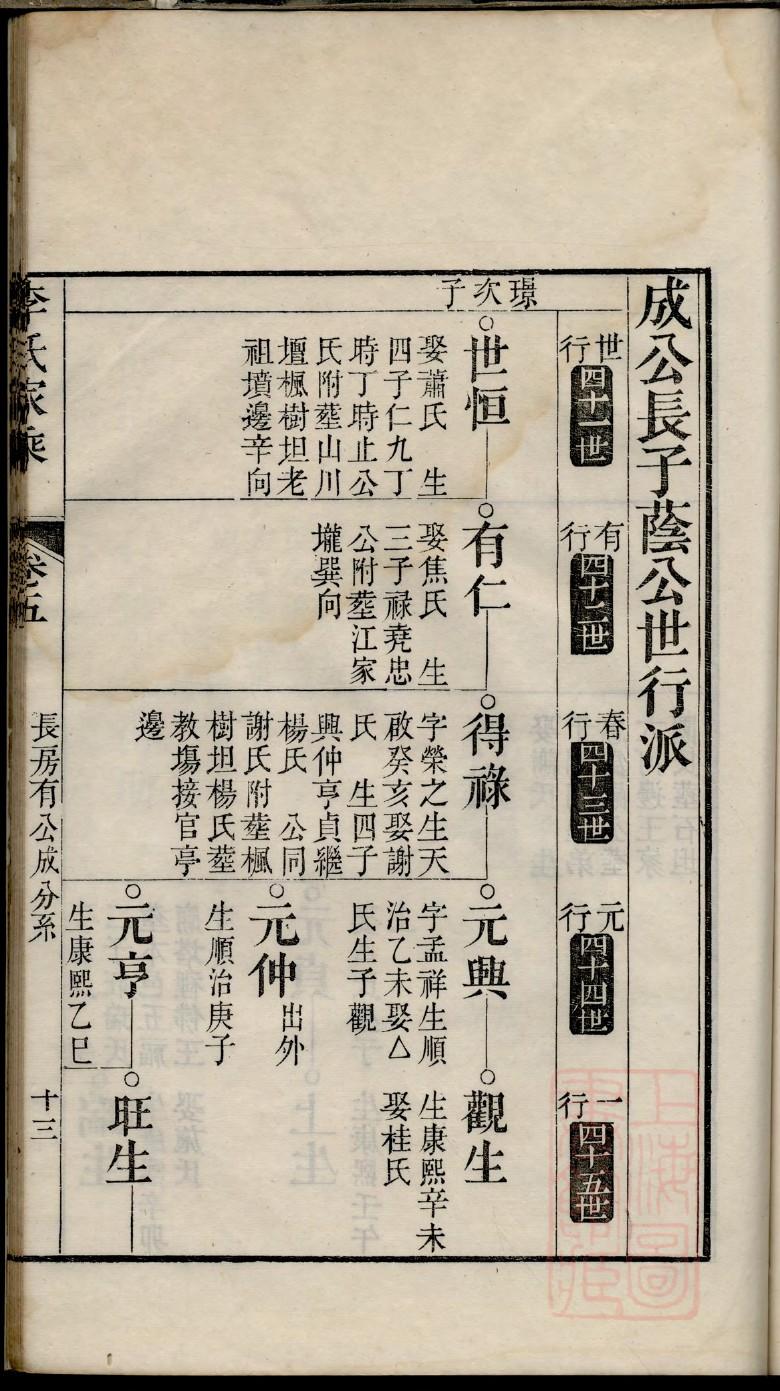 成公長子蔭公世行派
世行 四十一世
有行 四十二世
春行 四十三世
元行 四十四世
一行 四十五世
璟次子
世恒
娶蕭氏 生
四子仁九丁
時丁時止公
氏附塟山川
壇楓樹坦老
祖墳邊辛向
有仁
娶焦氏 生
三子禄堯忠
公附塟江家
壠巽向
得祿
字榮之生天
啟癸亥娶謝
氏 生四子
興仲亨貞繼
楊氏 公同
謝氏附塟楓
樹坦楊氏塟
教塲接官亭
邊
元興
字孟祥生順
治乙未娶△
氏生子觀
觀生
生康熙辛未
娶桂氏
元仲 出外
生順治庚子
元亨
生康熙乙巳
旺生
李氏家乘
卷五
長房有公成分系
十三
上海圖